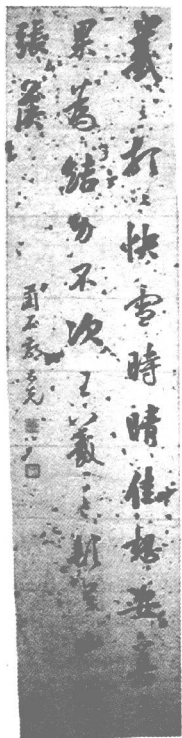 羲之頓首快雪時晴佳想安善
果為結力不次王羲之頓首
張侯